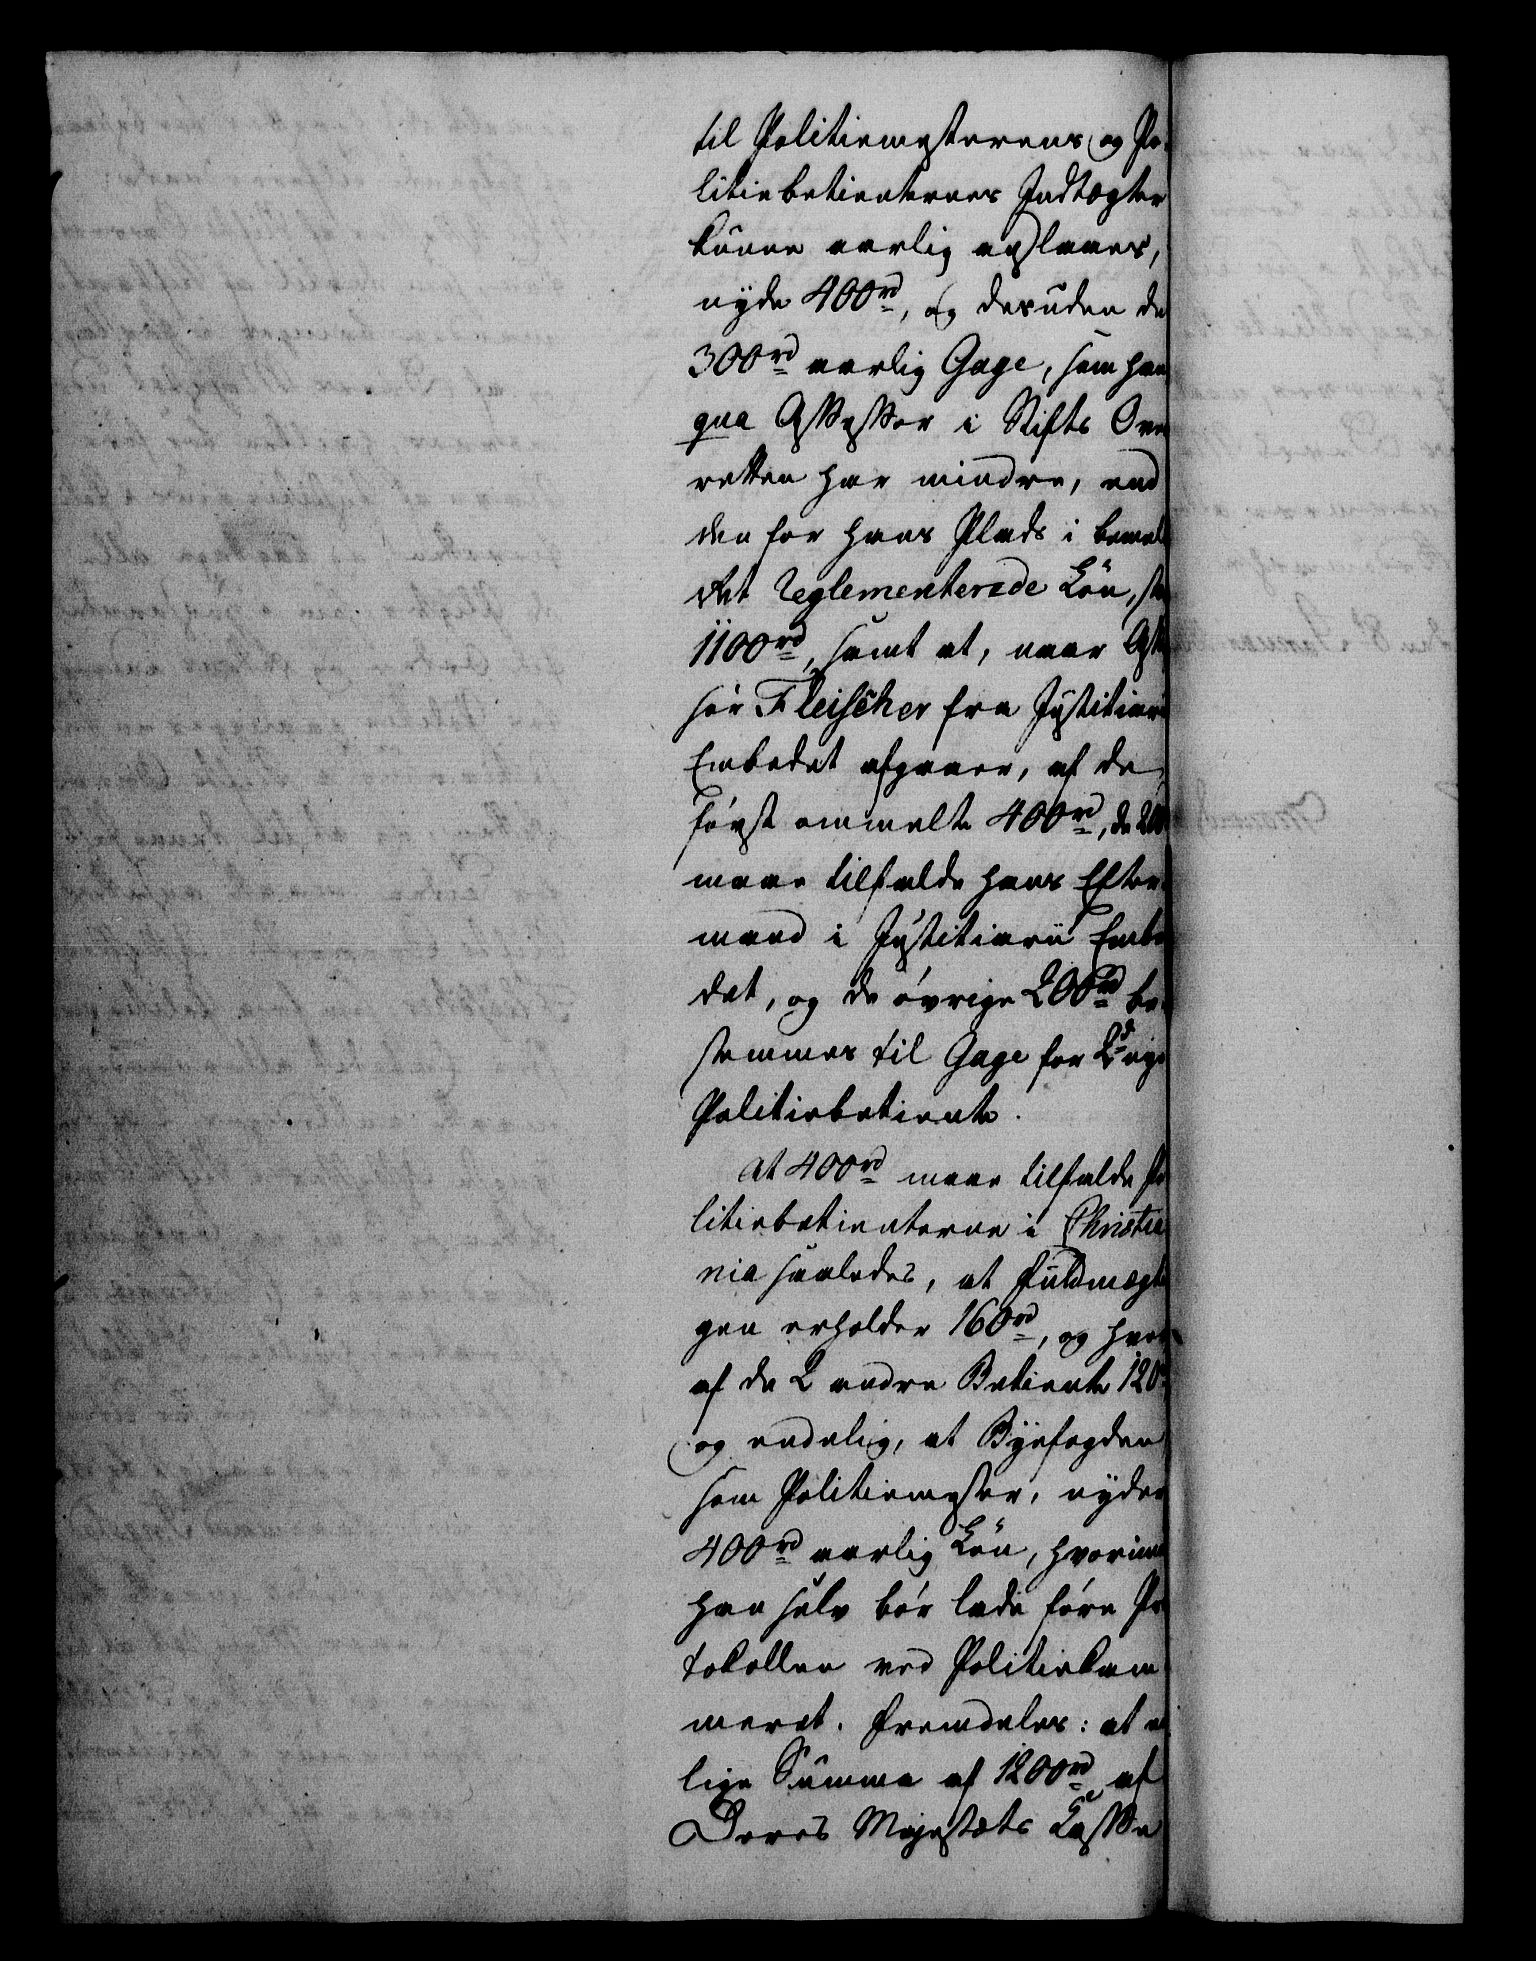 til Politiemesterens og Po-
litiebetienternes Indtægter
kunne aarlig anslaaes,
nyde 400rd, og desuden de
300rd aarlig Gage, som han
qua Assessor i Stifts Over
retten har mindre, end
den for hans Plads i bemel
det reglementerede Løn,
1100rd, samt at, naar Asse
sor Fleischer fra Justitiarii
Embedet afgaaer, af de
først ommelte 400rd, de 200
maae tilfalde hans Efter-
mand i Justitiarii Embe
det, og de øvrige 200rd be-
stemmes til Gage for 2de nye
Politiebetiente.
at 400rd maae tilfalde Po
litiebetienterne i Christia
nia saaledes, at Fuldmægti
gen erholder 160rd, og hver
af de 2 andre Betiente 120rd
og endelig, at Byefogden
som Politiemester, nyder
400rd aarlig Løn, hvorimod
han selv bør lade føre Pro
tokollen ved Politiekam
meret. Fremdeles: at en
lige Summa af 1200rd af
Deres Majestæts Casse